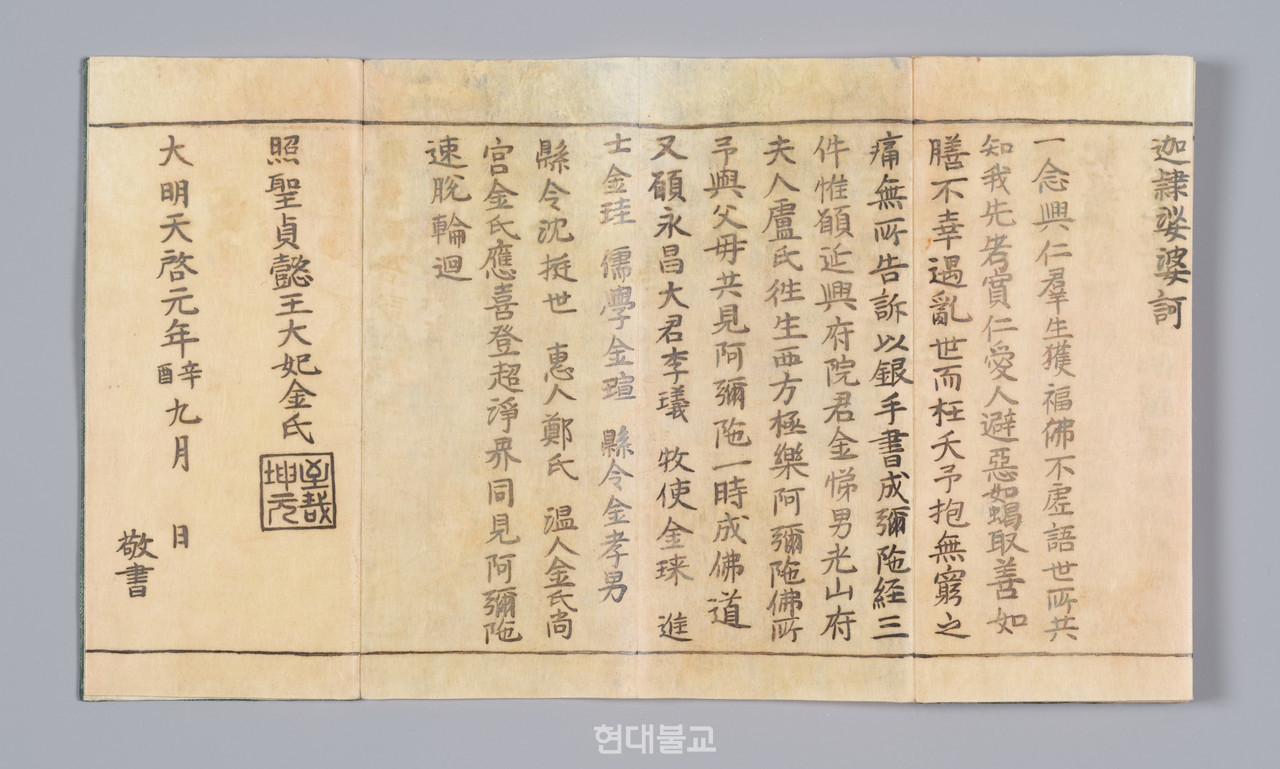 迦隷娑婆訶
一念興仁羣生獲福佛不虛語世所共
知我先考實仁愛人避惡如蝎取善如
膳不幸遇亂世而枉夭予抱無窮之
痛無所告訴以銀手書成彌陁經三
件惟願延興府院君金悌男光山府
夫人盧氏徃生西方極樂阿彌陁佛所
予與父母共見阿彌陁一時成佛道
又願永昌大君李㼁 牧使金琜 進
士金珪 儒學金瑄 縣令金孝男
縣令沈挺世 惠人鄭氏 溫人金氏尚
宮金氏應喜登超淨界同見阿彌陁
速脫輪迴
照聖貞懿王大妃金氏
至哉坤元
大明天啓元年辛酉九月 日
敬書
현대불교